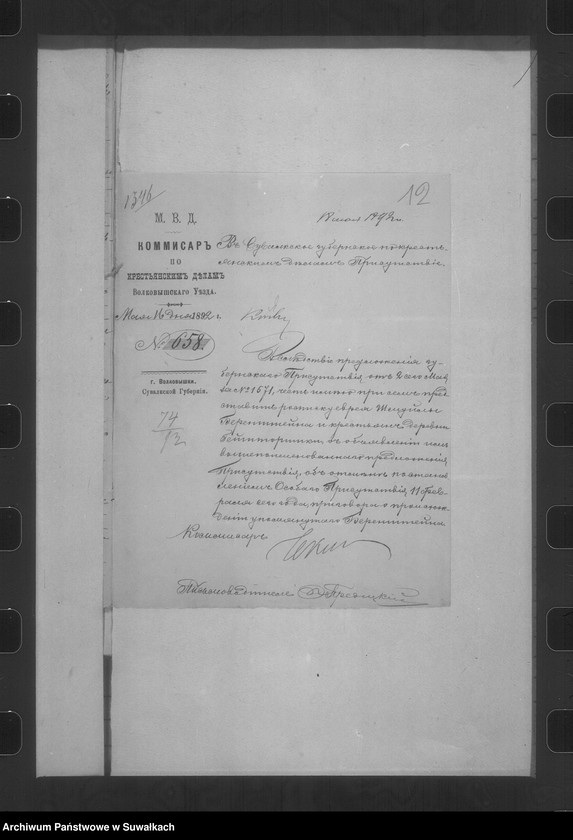 1346
12
М. В. Д.
КОММИСАРЪ
ПО
КРЕСТЬЯНСКИМЪ ДѢЛАМЪ
Волковышскаго Уѣзда.
Мая 16 дня 1892 г.
№ 658
г. Волковышки,
Сувалкской Губерніи.
74
18 мая 1892 г.
Въ Сувалкское губернское по крестьянскимъ дѣламъ Присутствіе.
Вслѣдствіе предложенія гу-
бернскаго Присутствія отъ 2 сего Ма
я за № 1571, честь имѣю при семъ пред
ставить росписку еврея
Беренштейна и крестьянъ деревни
въ объявленіи имъ
вышепоименованнаго предложенія
Присутствія, объ отмѣнѣ постано
вленіемъ Особаго Присутствія, 11 Фев-
раля сего года, приговора о
упомянутаго Беренштейна
Коммисаръ
Письмоводитель
Archiwum Państwowe w Suwałkach